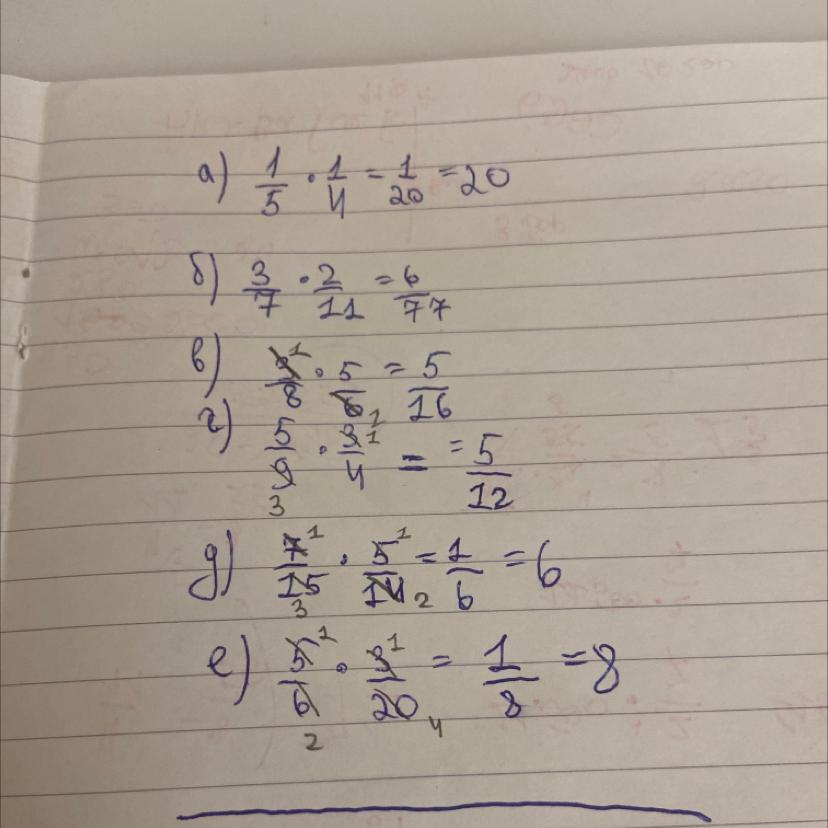 а) 1/5 · 1/4 = 1/20 = 20
б) 3/7 · 2/11 = 6/77
в) 3¹/8 · 5/6₂ = 5/16
г) 5/9₃ · 3¹/4 = = 5/12
д) 7¹/15₃ · 5¹/14₂ = 1/6 = 6
е) 5¹/6₂ · 3¹/20₄ = 1/8 = 8